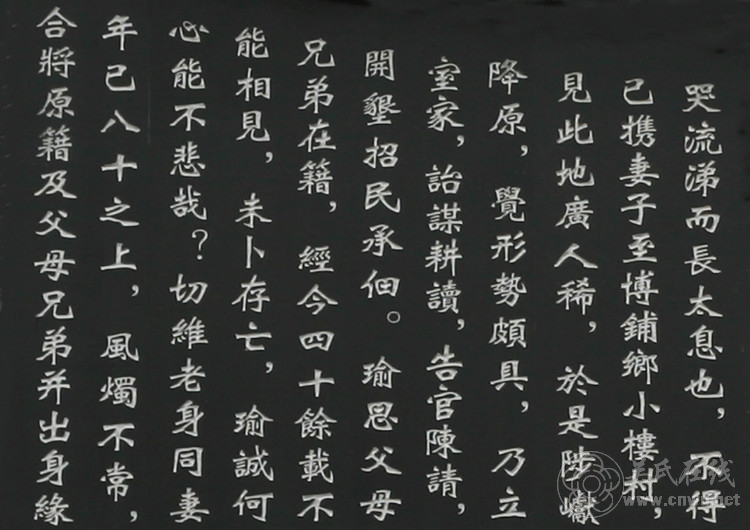 哭流涕而長太息也，不得
已携妻子至博鋪鄉小樓村，
見此地廣人稀，於是陟巘
降原，覺形勢頗具，乃立
室家，詒謀耕讀，告官陳請，
開墾招民承佃。瑜思父母
兄弟在籍，經今四十餘載不
能相見，未卜存亡，瑜誠何
心能不悲哉？切維老身同妻
年已八十之上，風燭不常，
合將原籍及父母兄弟并出身緣
吴氏在线
www.cnys.net